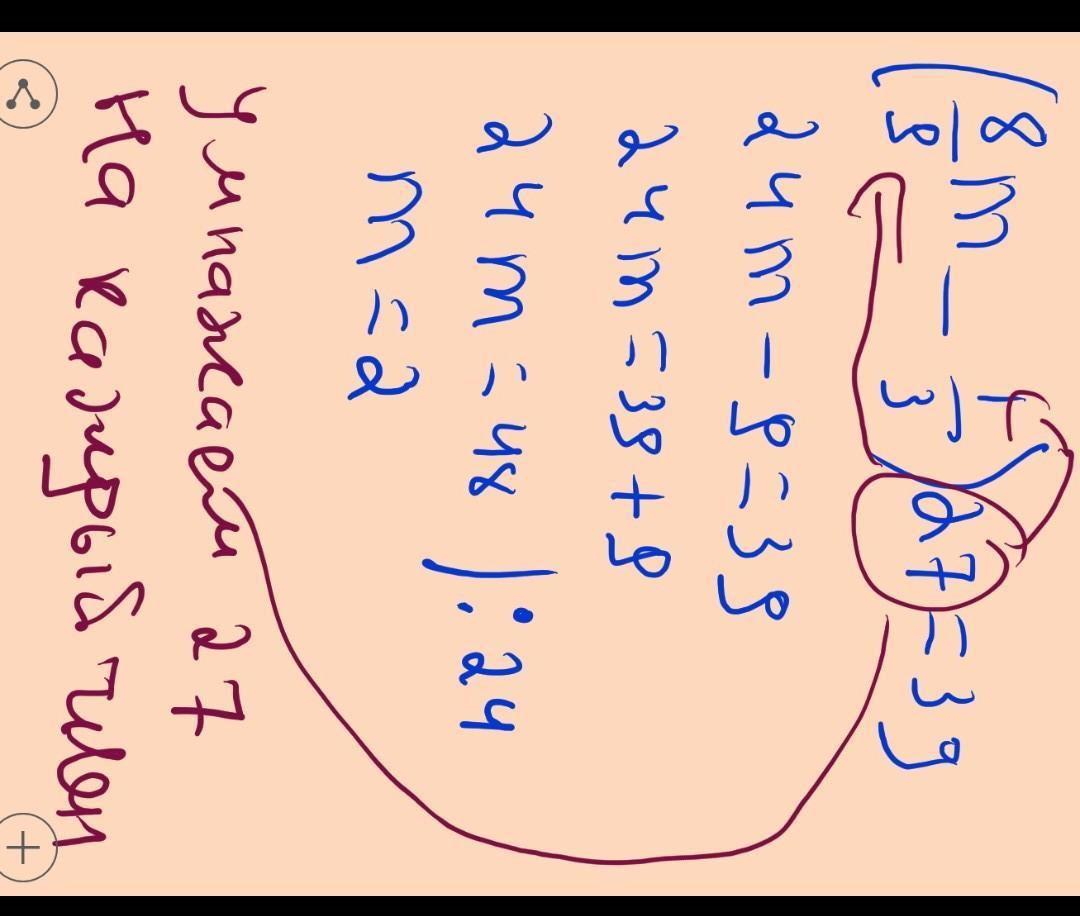 (8/9 m - 1/3) 27 = 39
24m - 9 = 39
24m = 39 + 9
24m = 48 | : 24
m = 2
Умнажаем 27
на каждый член